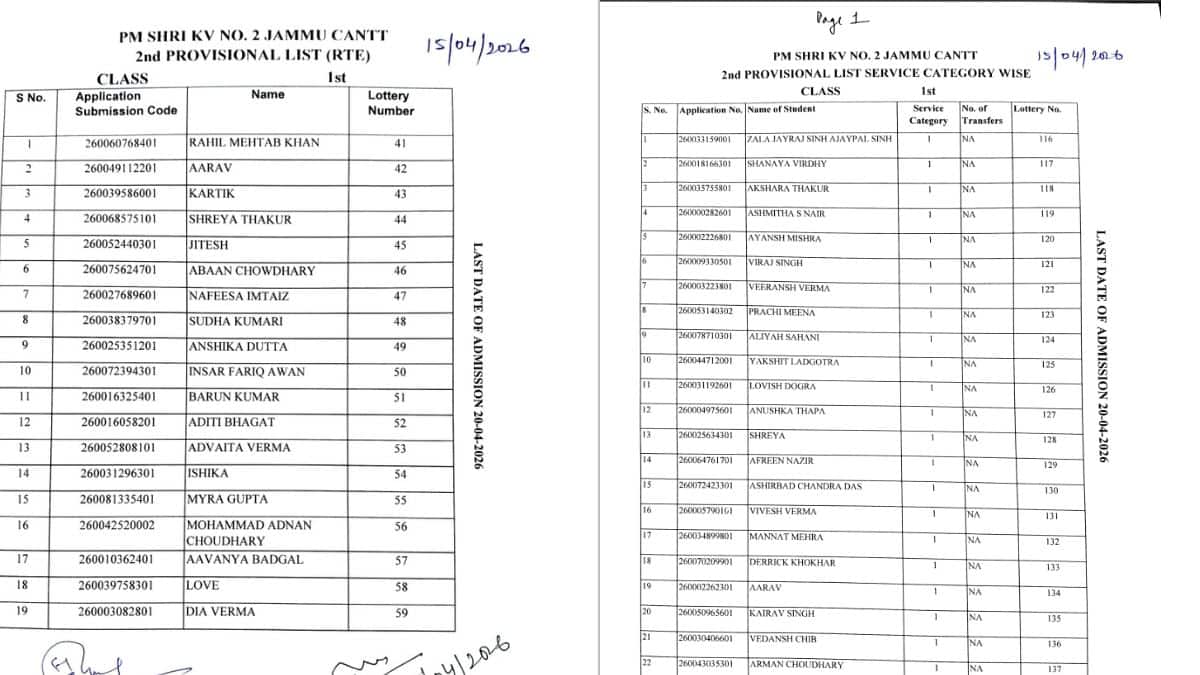 PM SHRI KV NO. 2 JAMMU CANTT
2nd PROVISIONAL LIST (RTE)
15/04/2026
CLASS 1st
S No. Application Submission Code Name Lottery Number
1 260060768401 RAHIL MEHTAB KHAN 41
2 260049112201 AARAV 42
3 260039586001 KARTIK 43
4 260068575101 SHREYA THAKUR 44
5 260052440301 JITESH 45
6 260075624701 ABAAN CHOWDHARY 46
7 260027689601 NAFEESA IMTAIZ 47
8 260038379701 SUDHA KUMARI 48
9 260025351201 ANSHIKA DUTTA 49
10 260072394301 INSAR FARIQ AWAN 50
11 260016325401 BARUN KUMAR 51
12 260016058201 ADITI BHAGAT 52
13 260052808101 ADVAITA VERMA 53
14 260031296301 ISHIKA 54
15 260081335401 MYRA GUPTA 55
16 260042520002 MOHAMMAD ADNAN CHOUDHARY 56
17 260010362401 AAVANYA BADGAL 57
18 260039758301 LOVE 58
19 260003082801 DIA VERMA 59
LAST DATE OF ADMISSION 20-04-2026
Page 1
PM SHRI KV NO. 2 JAMMU CANTT
15/04/2026
2nd PROVISIONAL LIST SERVICE CATEGORY WISE
CLASS 1st
S. No. Application No. Name of Student Service Category No. of Transfers Lottery No.
1 260033159001 ZALA JAYRAJ SINH AJAYPAL SINH 1 NA 116
2 260018166301 SHANAYA VIRDHY 1 NA 117
3 260035755801 AKSHARA THAKUR 1 NA 118
4 260000282601 ASHMITHA S NAIR 1 NA 119
5 260002226801 AYANSH MISHRA 1 NA 120
6 260009330501 VIRAJ SINGH 1 NA 121
7 260003223801 VEERANSH VERMA 1 NA 122
8 260053140302 PRACHI MEENA 1 NA 123
9 260078710301 ALIYAH SAHANI 1 NA 124
10 260044712001 YAKSHIT LADGOTRA 1 NA 125
11 260031192601 LOVISH DOGRA 1 NA 126
12 260004975601 ANUSHKA THAPA 1 NA 127
13 260025634301 SHREYA 1 NA 128
14 260064761701 AFREEN NAZIR 1 NA 129
15 260072423301 ASHIRBAD CHANDRA DAS 1 NA 130
16 260005790161 VIVESH VERMA 1 NA 131
17 260034899801 MANNAT MEHRA 1 NA 132
18 260070209901 DERRICK KHOKHAR 1 NA 133
19 260002262301 AARAV 1 NA 134
20 260050965601 KAIRAV SINGH 1 NA 135
21 260030406601 VEDANSH CHIB 1 NA 136
22 260043035301 ARMAN CHOUDHARY 1 NA 137
LAST DATE OF ADMISSION 20-04-2026